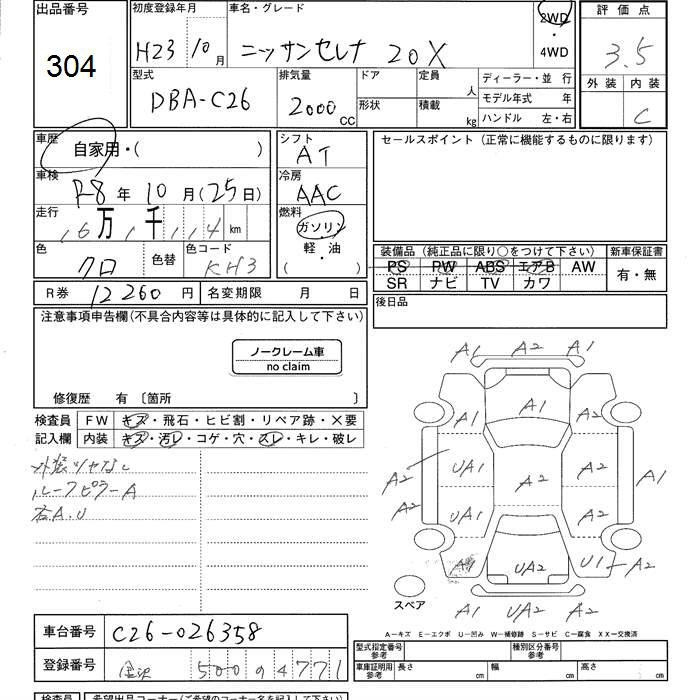 出品番号
304
初度登録年月
H23 10月
車名・グレード
ニッサンセレナ 20X
2WD
・
4WD
評価点
3.5
外装 内装
C
型式
DBA-C26
排気量
2000 CC
ドア
形状
定員 人
積載 kg
ディーラー・並行
モデル年式 年
ハンドル 左・右
車歴
自家用・( )
車検
R8年10月(25日)
走行
km
色
クロ
色替
色コード
KH3
シフト
AT
冷房
AAC
燃料
ガソリン
軽・油
( )
セールスポイント(正常に機能するものに限ります)
装備品(純正品に限り○をつけて下さい)
PS PW ABS エアB AW
SR ナビ TV カワ
新車保証書
有・無
後日品
R券 12260円
名変期限 月 日
注意事項申告欄(不具合内容等は具体的に記入して下さい)
ノークレーム車
no claim
修復歴 有 〔箇所 〕
検査員
記入欄
FW キズ・飛石・ヒビ割・リペア跡・X要
内装 キズ・汚レ・コゲ・穴・スレ・キレ・破レ
外装ツヤなし
ルーフピラーA
右A.U
A1 A2 A1
A1
A1 A1
A2 UA1 A2 A2 A1
A2 UA1 A2
A2 UA2 U1 A2
A1 UA2 A1
スペア
A−キズ E−エクボ U−凹み W−補修跡 S−サビ C−腐食 XX−交換済
車台番号 C26-026358
登録番号 金沢 500 4771
型式指定番号
参考
種別区分番号
参考
車庫証明用
参考
長さ cm 幅 cm 高さ cm
検査員
希望出品コーナー(ご希望のコーナー名を記入して下さい)